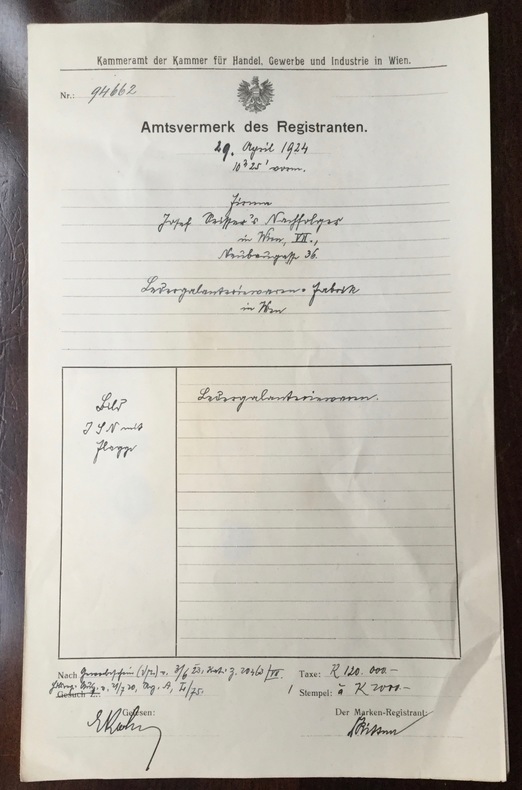 Kammeramt der Kammer für Handel, Gewerbe und Industrie in Wien.
Nr.: 94662
Amtsvermerk des Registranten.
29. April 1924
10h 25' vorm.
Firma
Josef Nachfolger
in Wien, VII.,
Neubaugasse 36.
Ledergalanteriewaren-Fabrik
in Wien
Bild
J S N mit
Flagge
Ledergalanteriewaren.
Nach Gewerbeschein
Gesuch Z.:
Taxe: K 120.000.-
Stempel: à K 2000.-
Gelesen:
Der Marken-Registrant: